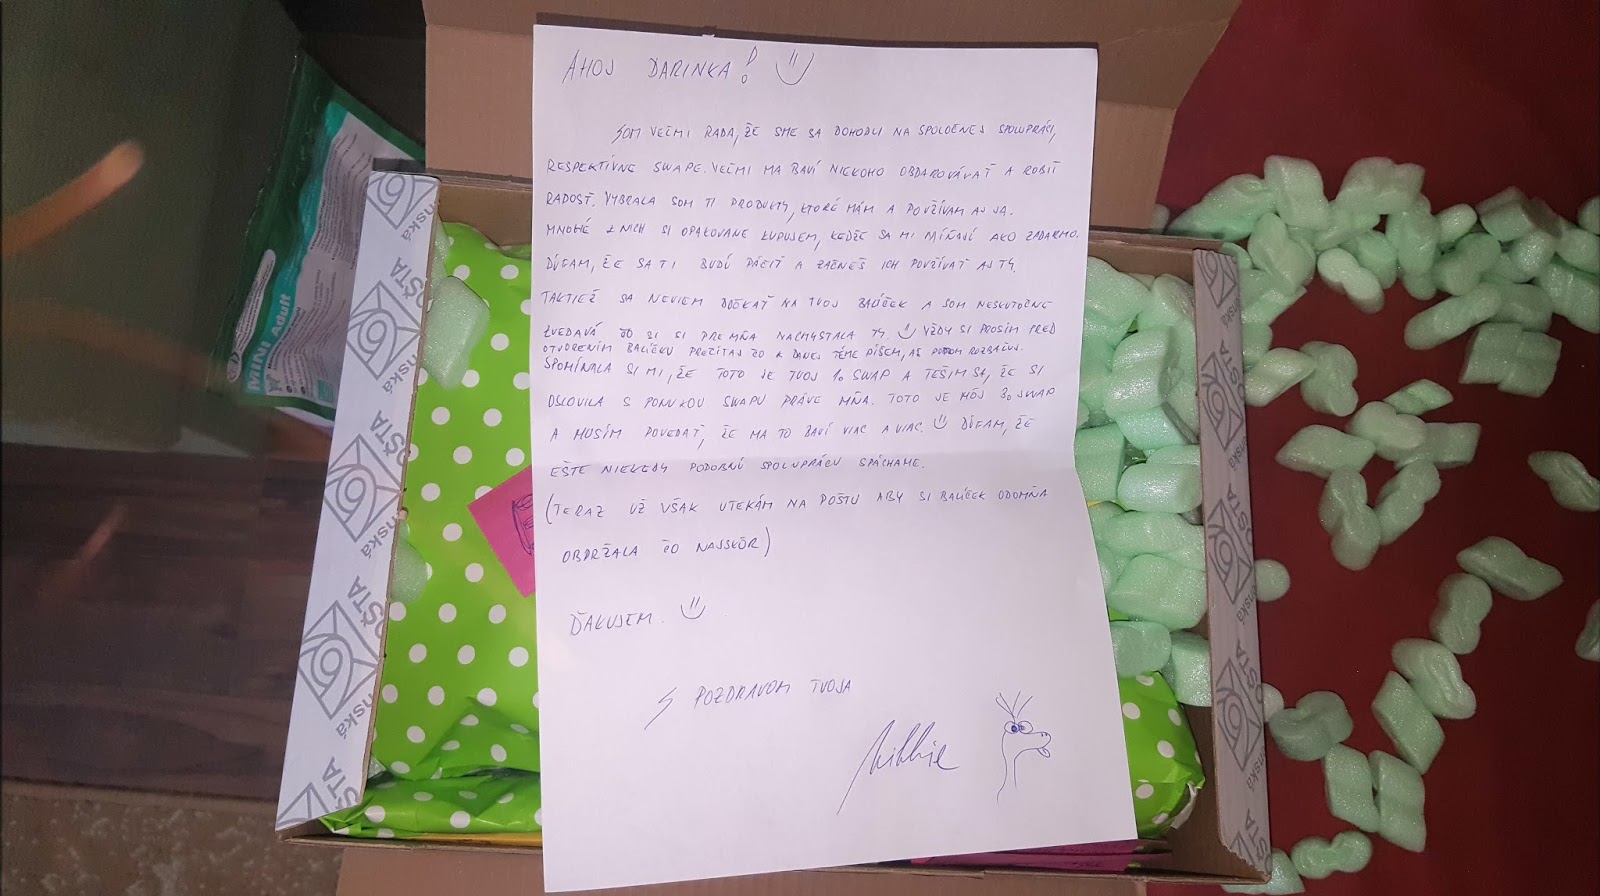 AHOJ ĎARINKA!
SOM VEĽMI RADA, ŽE SME SA DOHODLI NA SPOLOČNEJ SPOLUPRÁCI,
RESPEKTÍVNE SWAPE. VEĽMI MA BAVÍ NIEKOHO OBDAROVÁVAŤ A ROBIŤ
RADOSŤ. VYBRALA SOM TI PRODUKTY, KTORÉ MÁM A POUŽÍVAM AJ JA.
MNOHÉ Z NICH SI OPAKOVANE KUPUJEM, KEĎŽE SA MI MÍŇAJÚ AKO ZADARMO.
DÚFAM, ŽE SA TI BUDÚ PÁČIŤ A ZAČNEŠ ICH POUŽÍVAŤ AJ TY.
TAKTIEŽ SA NEVIEM DOČKAŤ NA TVOJ BALÍČEK A SOM NESKUTOČNE
ZVEDAVÁ ČO SI SI PRE MŇA NACHYSTALA TY. VŽDY SI PROSÍM PRED
OTVORENÍM BALÍČKU PREČÍTAJ ČO K DANEJ TÉME PÍŠEM, AŽ POTOM ROZBAĽUJ.
SPOMÍNALA SI MI, ŽE TOTO JE TVOJ 1. SWAP A TEŠÍM SA, ŽE SI
OSLOVILA S PONUKOU SWAPU PRÁVE MŇA. TOTO JE MÔJ 3. SWAP
A MUSÍM POVEDAŤ, ŽE MA TO BAVÍ VIAC A VIAC. DÚFAM, ŽE
EŠTE NIEKEDY PODOBNÚ SPOLUPRÁCU SPÁCHAME.
(TERAZ UŽ VŠAK UTEKÁM NA POŠTU ABY SI BALÍČEK ODOMŇA
OBDRŽALA ČO NAJSKÔR)
ĎAKUJEM.
S POZDRAVOM TVOJA
MINI Adult
POŠTA